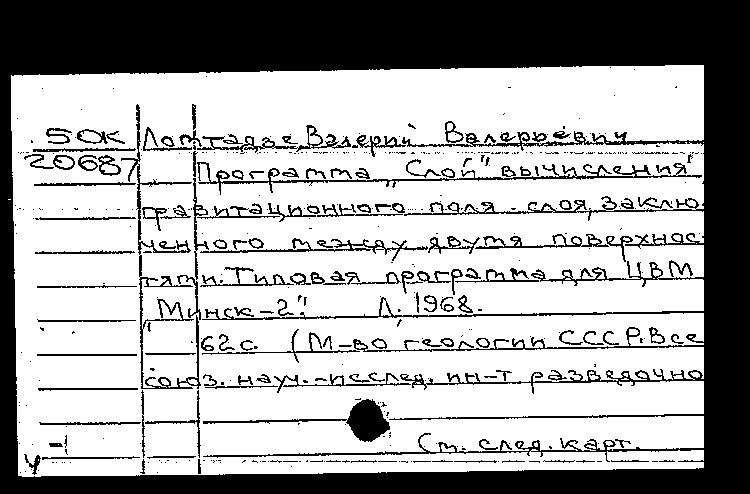 50К Ломтадзе, Валерий Валерьевич
20687 Программа „Слой" вычисления
гравитационного поля слоя, заклю-
ченного между двумя поверхнос-
тями. Типовая программа для ЦВМ
„Минск-2". Л. 1968.
62 с. (М-во геологии СССР. Все
союз. науч.-исслед. ин-т разведочно
-1 См. след. карт.
у